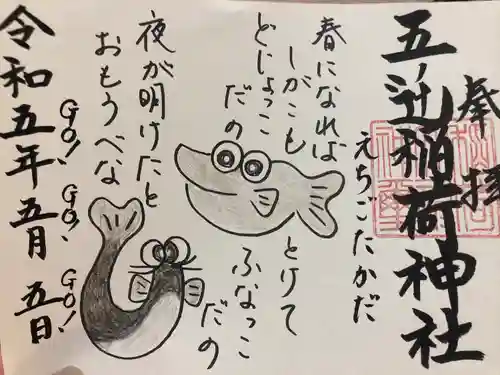 奉拝
五ノ辻稲荷神社
えちごたかだ
春になれば
しがこも
とけて
どじょっこ
だの
ふなっこ
だの
夜が明けたと
おもうべな
GO! GO! GO!
令和五年五月五日